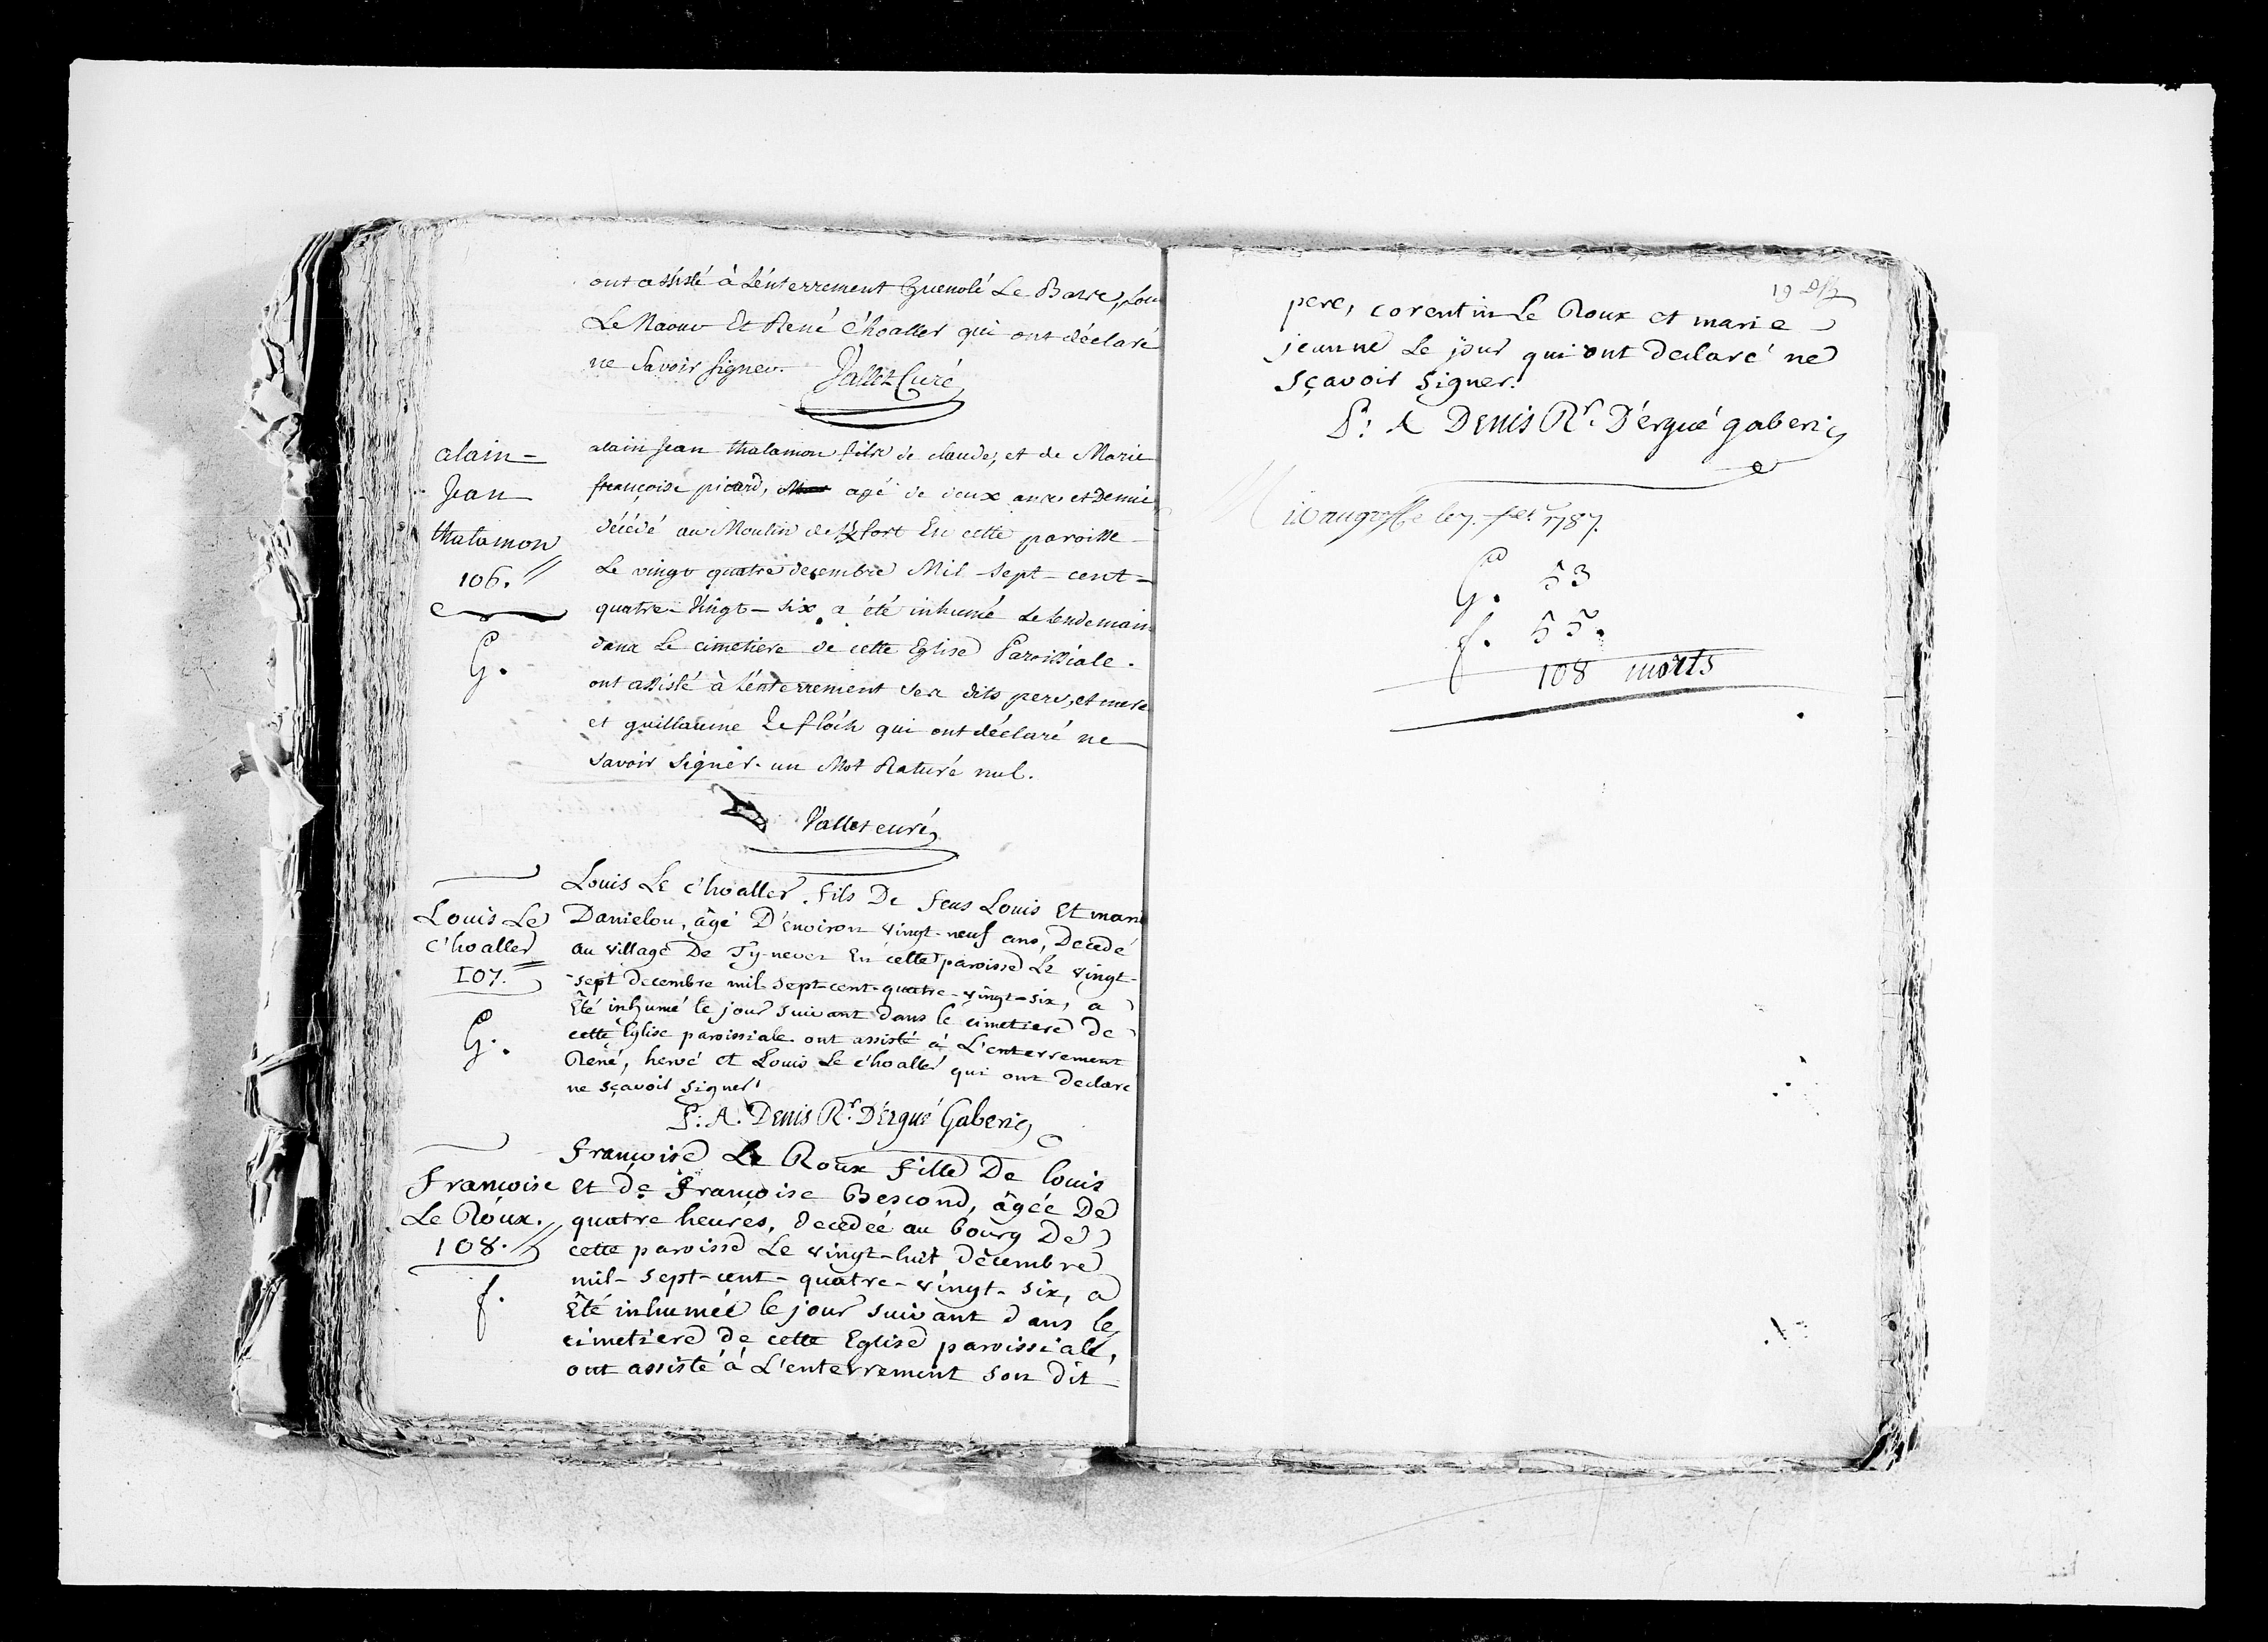 ont assisté à L'enterrement Guenolé Le Barre, Lou
Le Naour Et René C'hoaller qui ont déclaré
ne Savoir signer. Vallet Curé
alain=
Jean
thalamon
106.
G.
alain Jean thalamon fils de claude, et de Marie
françoise picard, agé de deux ans et Demie
décédé au Moulin de fort En cette paroisse
Le vingt quatre decembre Mil Sept-cent-
quatre-Vingt-six a été inhumé Le Lendemain
dans Le cimetiere de cette Eglise Paroissiale.
ont assisté à L'enterrement ses dits pere, et mere
et guillaume Le flóch qui ont déclaré ne
savoir signer. un Mot Raturé nul.
Vallet curé
Louis Le
c'hoaller
107.
G.
Louis Le c'hoaller, fils De feus Louis Et mari
Danielou, âgé D'environ vingt-neuf ans, Decedé
au village De Ty-never En cette paroisse Le vingt-
-sept decembre mil-sept-cent-quatre-vingt-six, a
Eté inhumé le jour suivant dans le cimetiere de
cette Eglise paroissiale. ont assisté à L'enterrement
René, hervé et Louis Le c'hoaller qui ont declaré
ne sçavoir signer
P: A. Denis Rr. D'Ergué Gaberic
Francoise
Le Roux.
108.
f.
Françoise Le Roux fille De louis
Et de Françoise Bescond, âgée De
quatre heures, decedée au bourg De
cette paroisse Le vingt-huit décembre
mil-sept-cent-quatre-vingt-six, a
Eté inhumée le jour suivant dans le
cimetiere de cette Eglise paroissiale,
ont assisté à L'enterrement son dit
19
pere, corentin Le Roux et marie
jeanne Le jour qui ont declaré ne
sçavoir signer.
P: A Denis Rr. D'ergué gaberic
le 7. 1787.
G. 53
f. 55.
108 morts